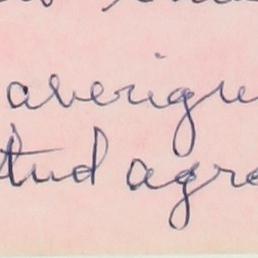 averigu
tud agra